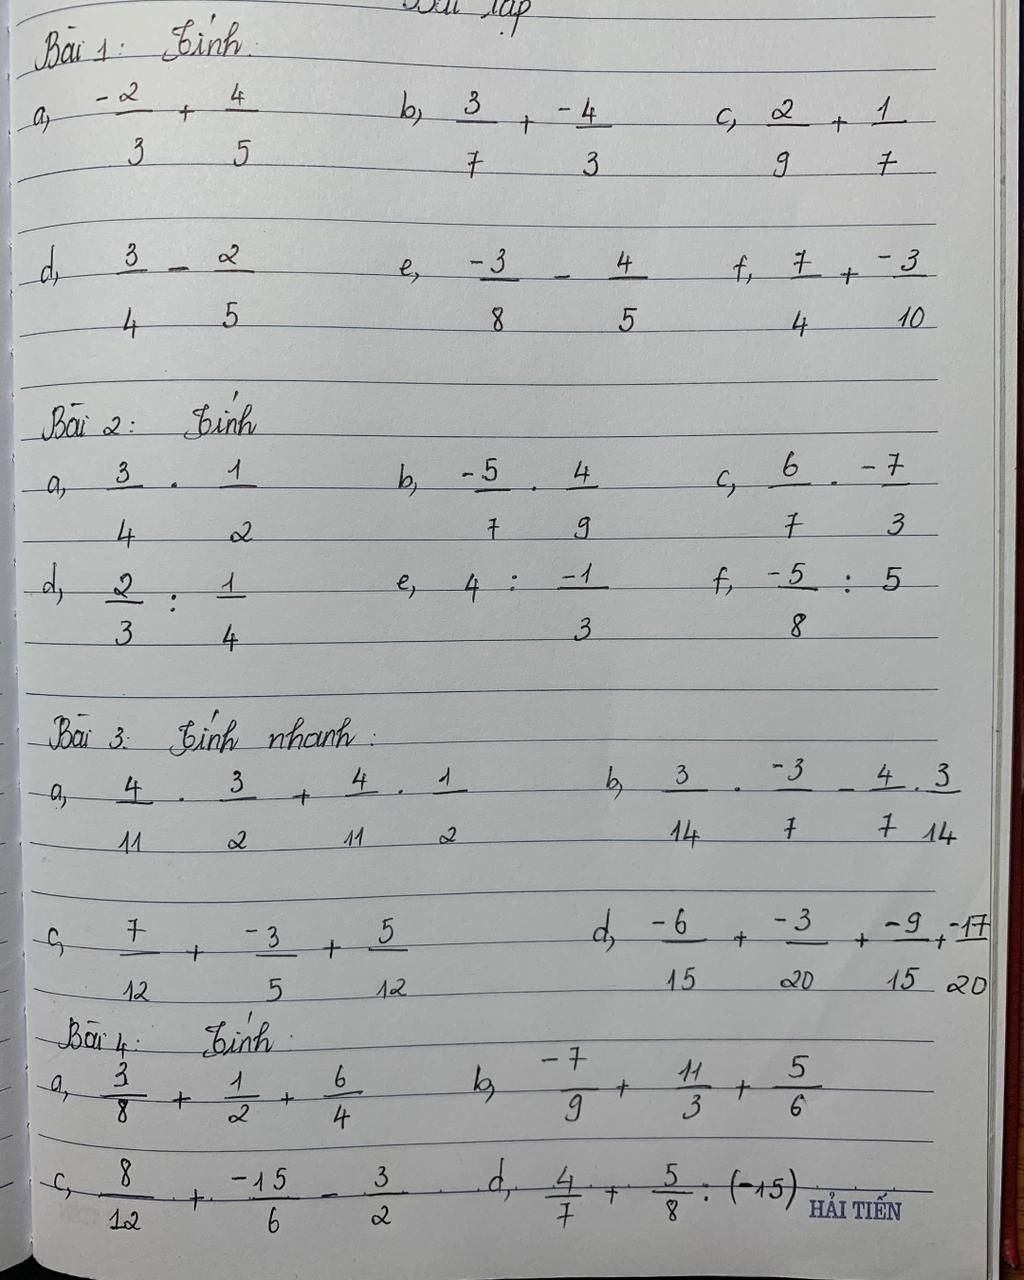 Bài tập
Bài 1: Tính.
a, -2/3 + 4/5 b, 3/7 + -4/3 c, 2/9 + 1/7
d, 3/4 - 2/5 e, -3/8 - 4/5 f, 7/4 + -3/10
Bài 2: Tính
a, 3/4 . 1/2 b, -5/7 . 4/9 c, 6/7 . -7/3
d, 2/3 : 1/4 e, 4 : -1/3 f, -5/8 : 5
Bài 3: Tính nhanh:
a, 4/11 . 3/2 + 4/11 . 1/2 b, 3/14 . -3/7 - 4/7 . 3/14
c, 7/12 + -3/5 + 5/12 d, -6/15 + -3/20 + -9/15 + -17/20
Bài 4: Tính.
a, 3/8 + 1/2 + 6/4 b, -7/9 + 11/3 + 5/6
c, 8/12 + -15/6 - 3/2 d, 4/7 + 5/8 : (-15)
HẢI TIẾN